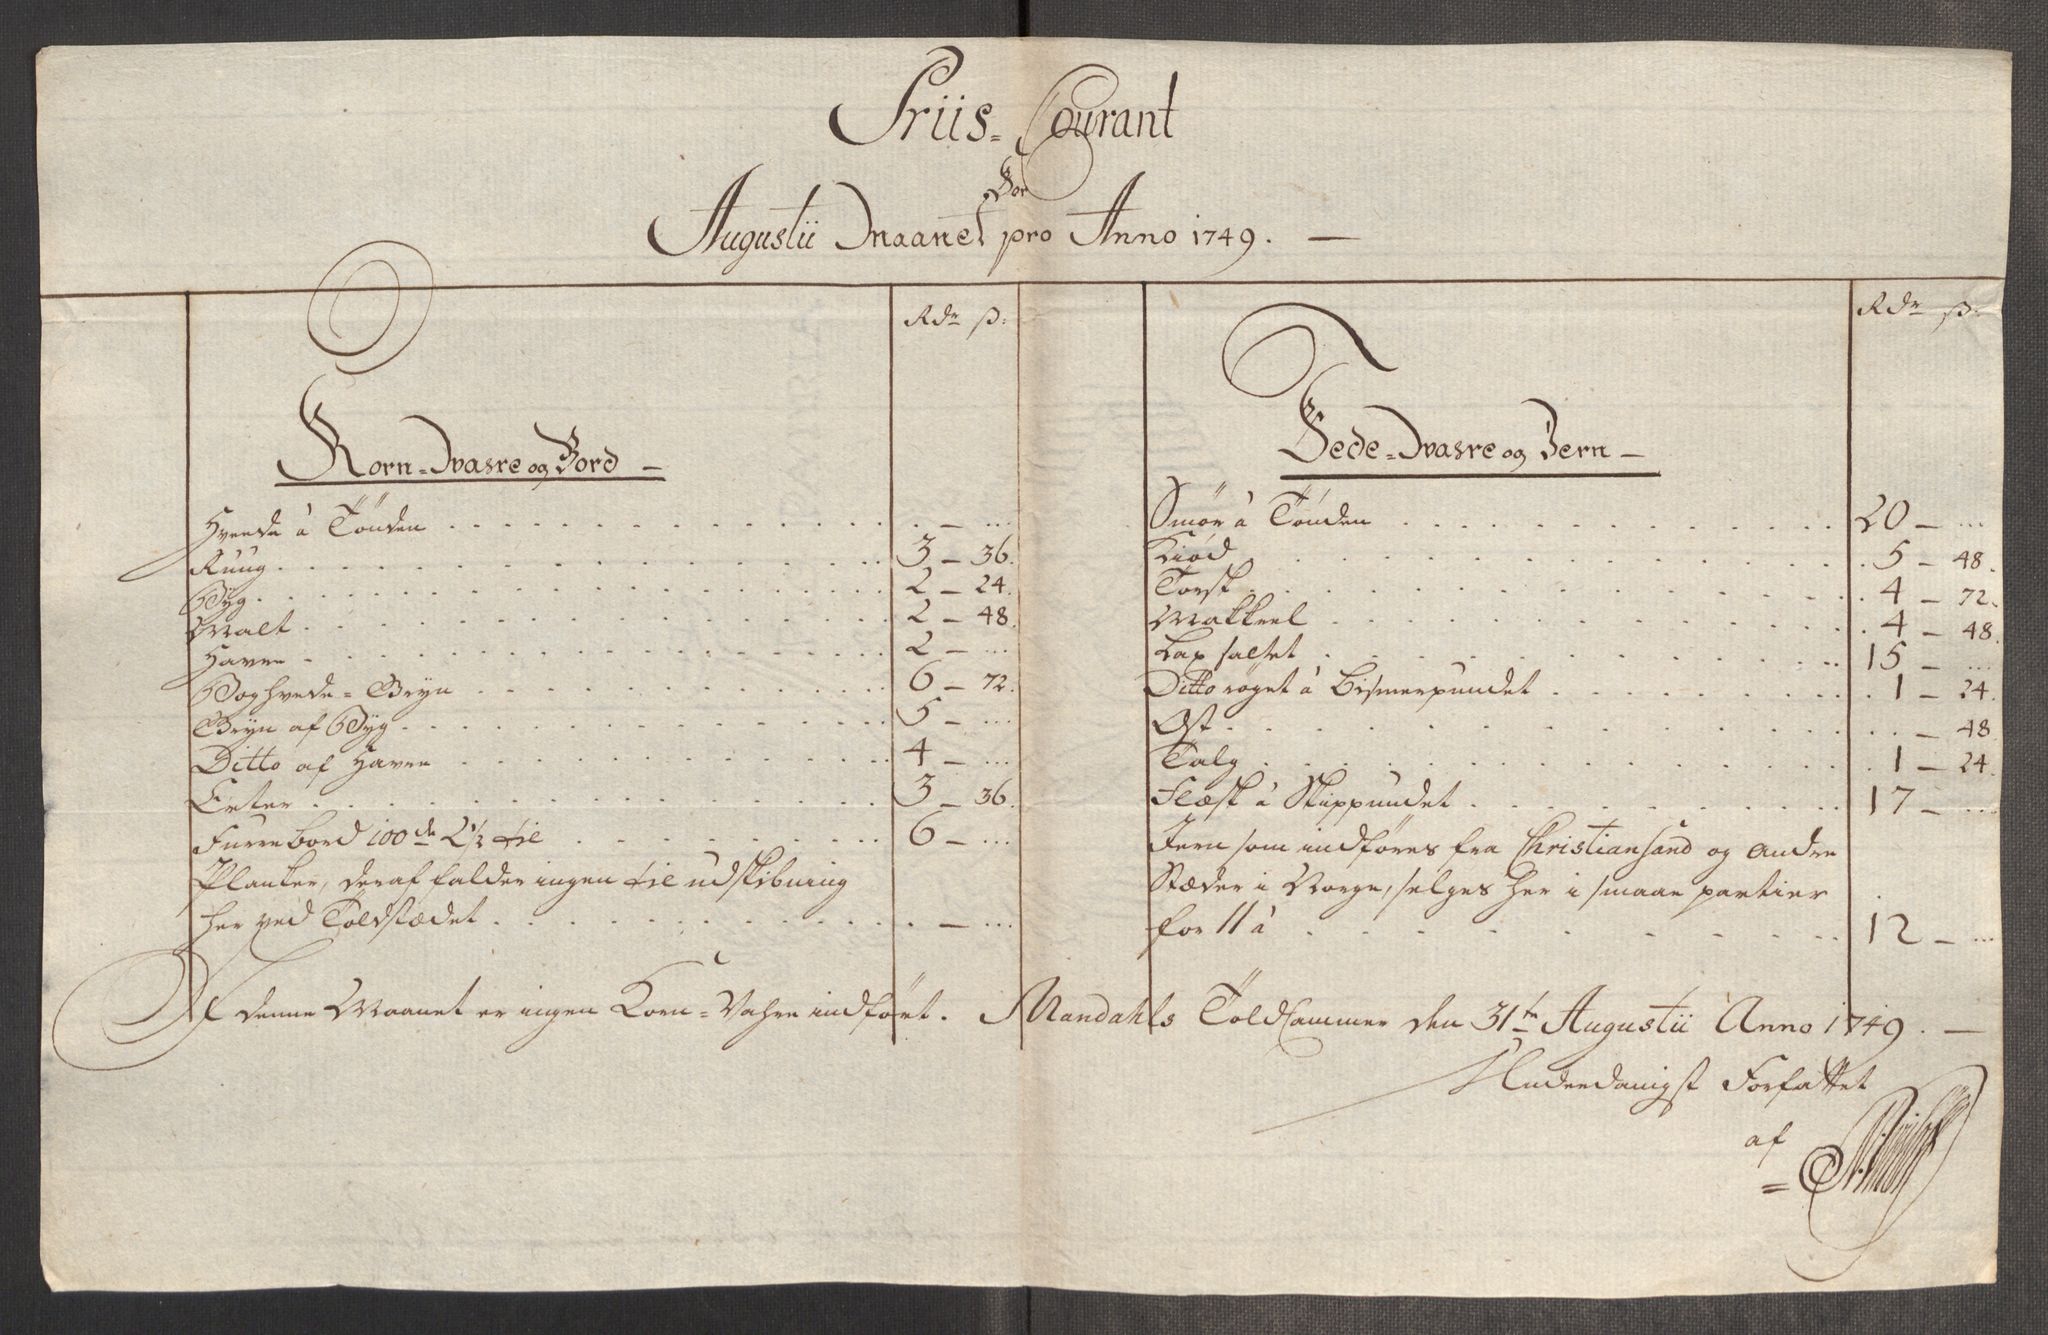 Priis-Courant
For
Augustii Maanet pro Anno 1749. —
Rdr ß:
Korn-Wahre og Bord —
Hvede à Tönden . . . — ...
Ruug . . . 3 — 36.
Byg . . . 2 — 24.
Malt . . . 2 — 48.
Havre . . . 2 — ...
Boghvede-Gryn . . . 6 — 72.
Gryn af Byg . . . 5 — ...
Ditto af Havre . . . 4 — ...
Erter . . . 3 — 36.
Furre bord 100de 2 1/2 til . . . 6 — ...
Planker, deraf falder ingen til udskibning
her ved Toldstædet . . . — ...
Rdr ß:
Fede-Wahre og Jern —
Smör à Tönden . . . 20 — ...
Kiød . . . 5 — 48.
Torsk . . . 4 — 72.
Makkrel . . . 4 — 48.
Lax saltet . . . 15 — ...
Ditto röget à Bismerpundet . . . 1 — 24.
Ost . . . — 48
Talg . . . 1 — 24.
Flæsk à Skippundet . . . 17 — ...
Jern som indföres fra Christiansand og andre
Stæder i Norge, selges her i smaae partier
for 11 à . . . 12 — ...
I denne Maanet er ingen Korn-Vahre indfört. Mandahls Toldkammer den 31te Augustii Anno 1749. —
Underdanigst Forfattet
af